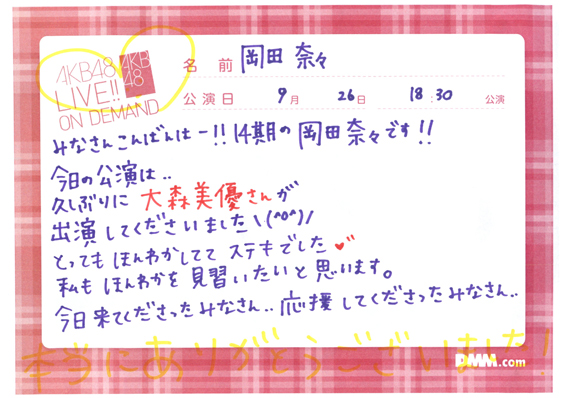 AKB48
LIVE!!
ON DEMAND
AKB
48
名前 岡田 奈々
公演日 9月 26日 18:30 公演
みなさんこんばんはー!!14期の岡田奈々です!!
今日の公演は..
久しぶりに 大森美優さんが
出演してくださいました\(^o^)/
とっても ほんわかしてて ステキでした♥
私も ほんわかを 見習いたいと思います。
今日来てくださったみなさん.. 応援してくださったみなさん..
本当にありがとうございました!
DMM.com